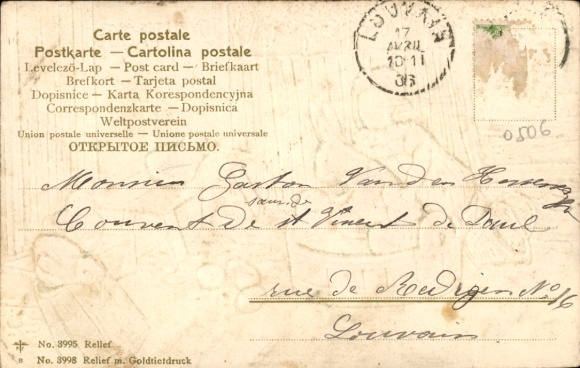 Carte postale
Postkarte — Cartolina postale
Levelező-Lap — Post card — Briefkaart
Brefkort — Tarjeta postal
Dopisnice — Karta Korespondencyjna
Correspondenzkarte — Dopisnica
Weltpostverein
Union postale universelle — Unione postale universale
ОТКРЫТОЕ ПИСЬМО.
LOUVAIN
17
AVRIL
10-11
06
0506
Monsieur Gaston Van den
sœurs de
Couvent De St Vincent de Paul
rue de No 16
Louvain
No. 3995 Relief
No. 3998 Relief m. Goldtiefdruck